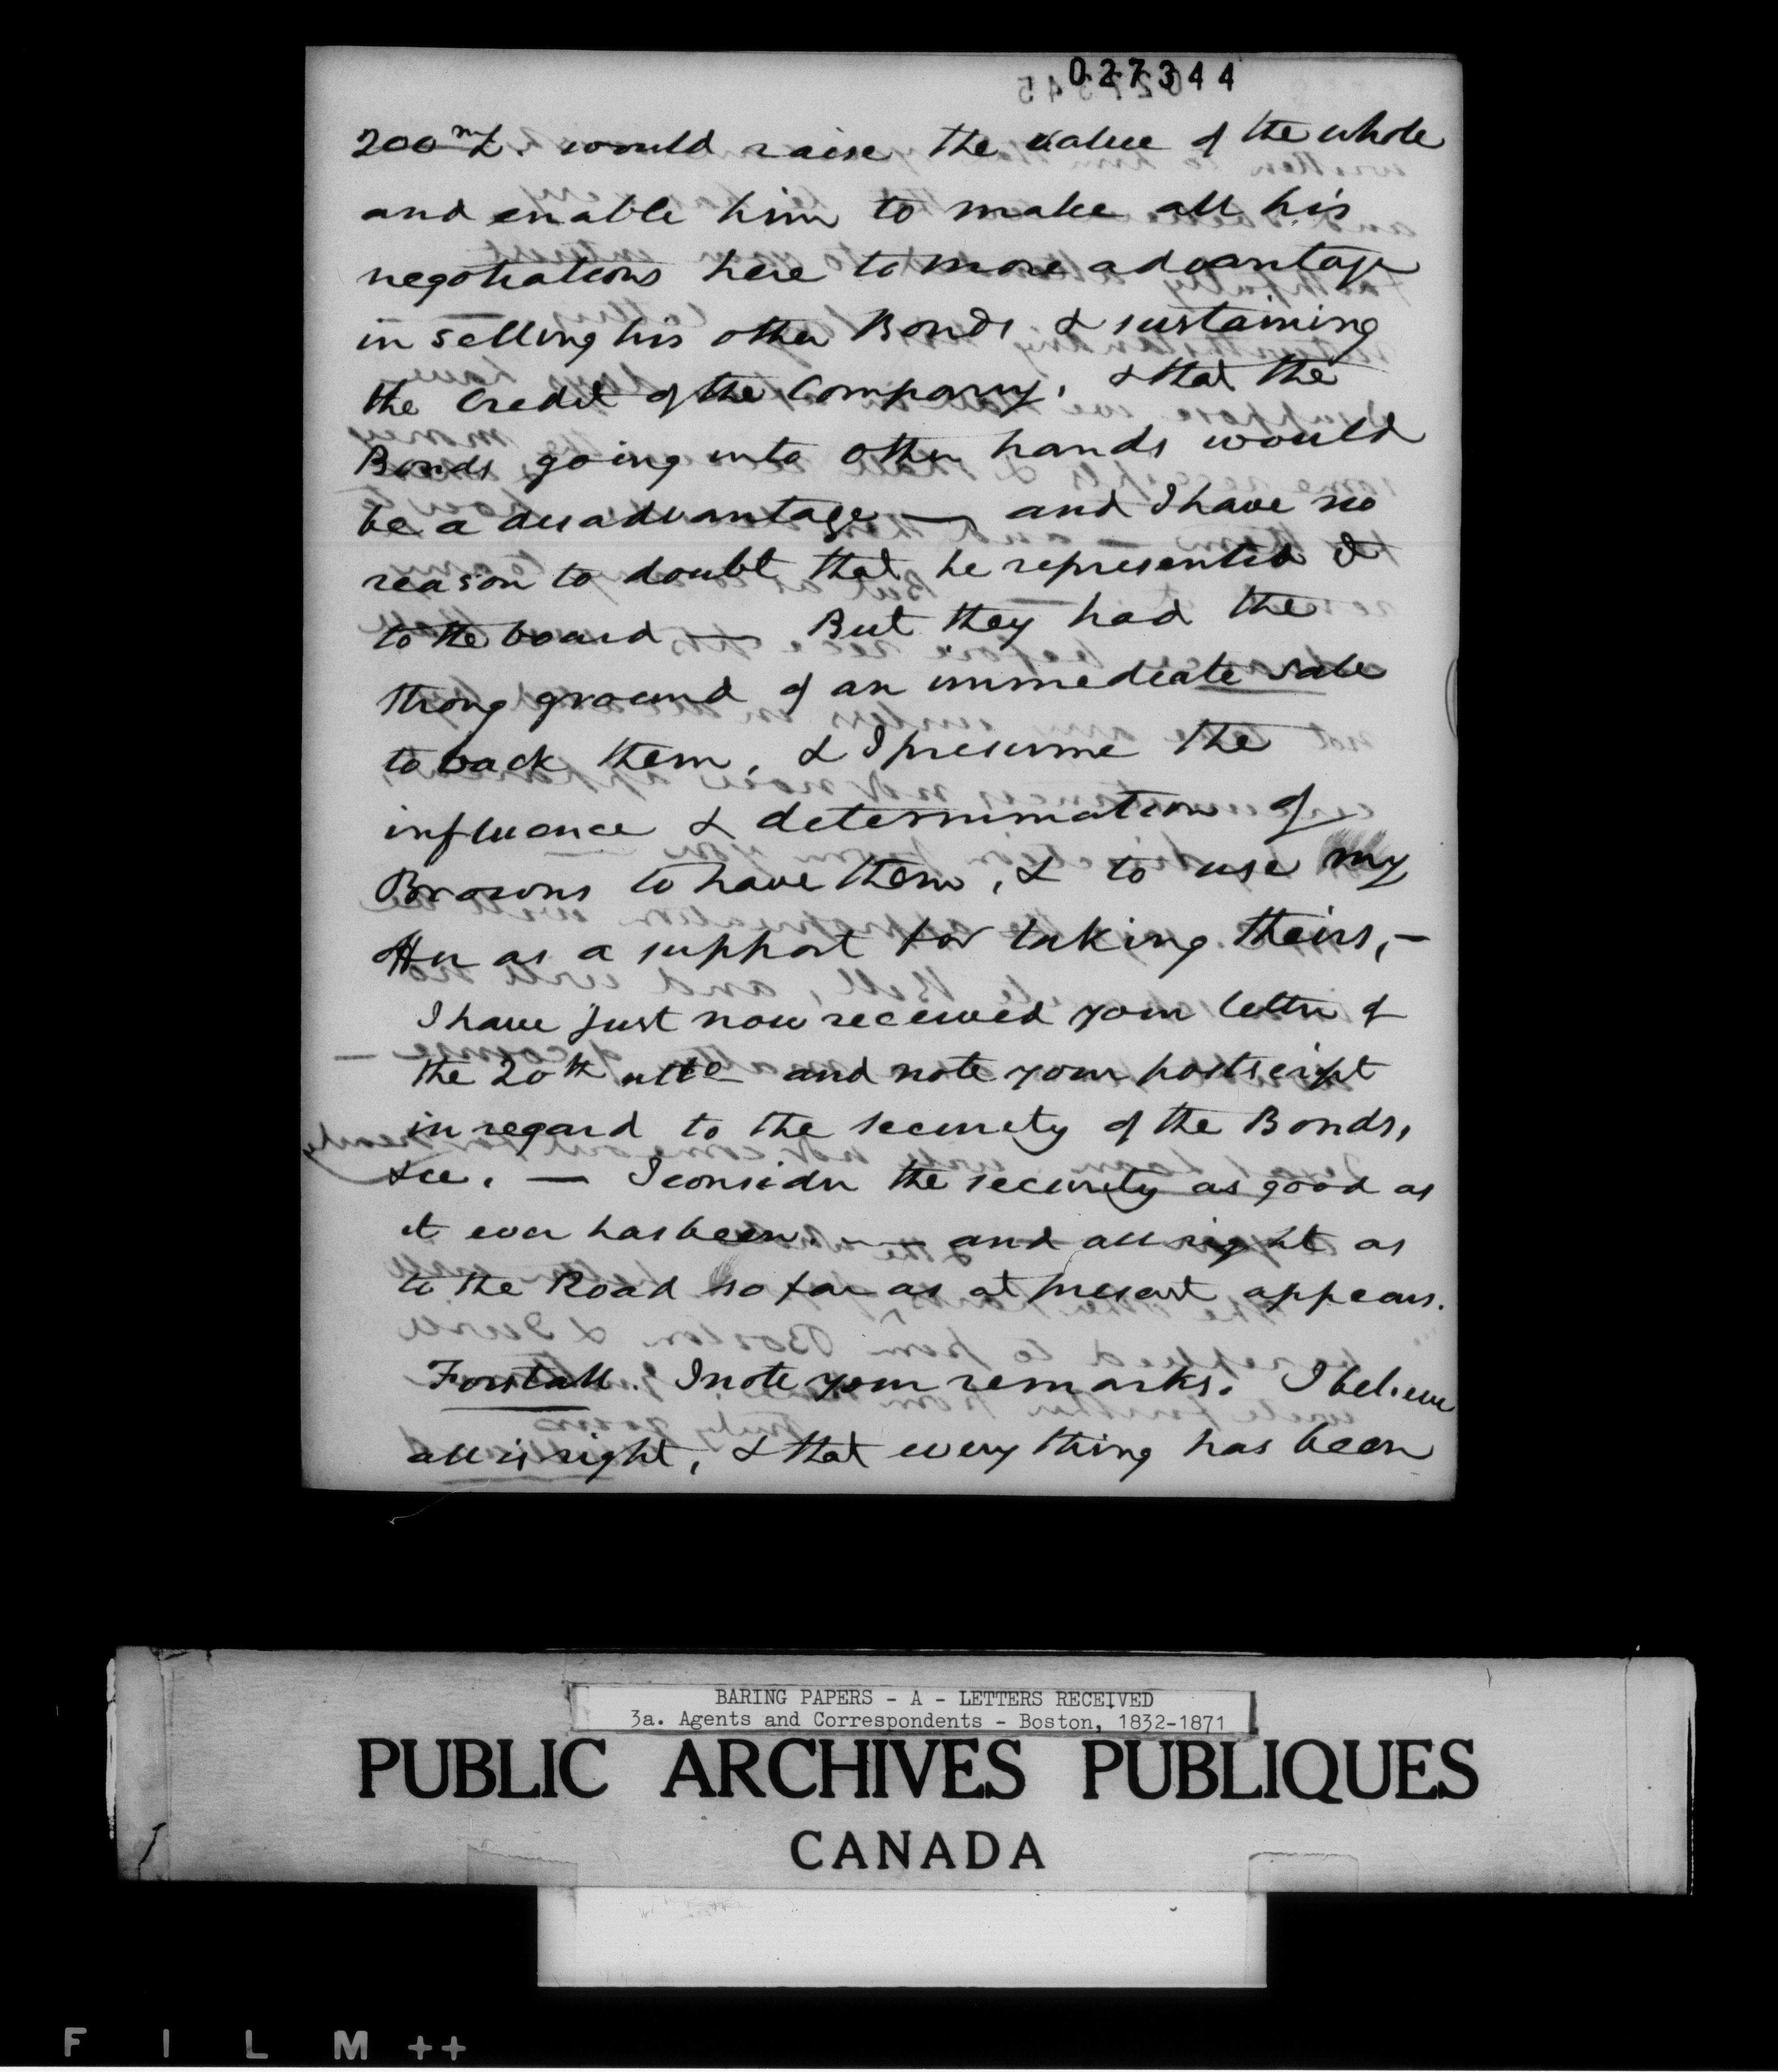 027344
200m£. would raise the value of the whole
and enable him to make all his
negotiations here to more advantage
in selling his other Bonds & sustaining
the Credit of the Company, & that the
Bonds going into other hands would
be a disadvantage — and I have no
reason to doubt that he represented it
to the board — But they had the
strong ground of an immediate sale
to back them, & I presume the
influence & determination of
Browns to have them, & to use my
as a support for taking theirs, —
I have just now received your letter of
the 20th ulto and note your postscript
in regard to the security of the Bonds,
&ce. — I consider the security as good as
it ever has been. — and all right as
to the Road so far as at present appears.
Forstall. I note your remarks. I believe
all is right, & that every thing has been
BARING PAPERS - A - LETTERS RECEIVED
3a. Agents and Correspondents - Boston, 1832-1871
PUBLIC ARCHIVES PUBLIQUES
CANADA
FILM++